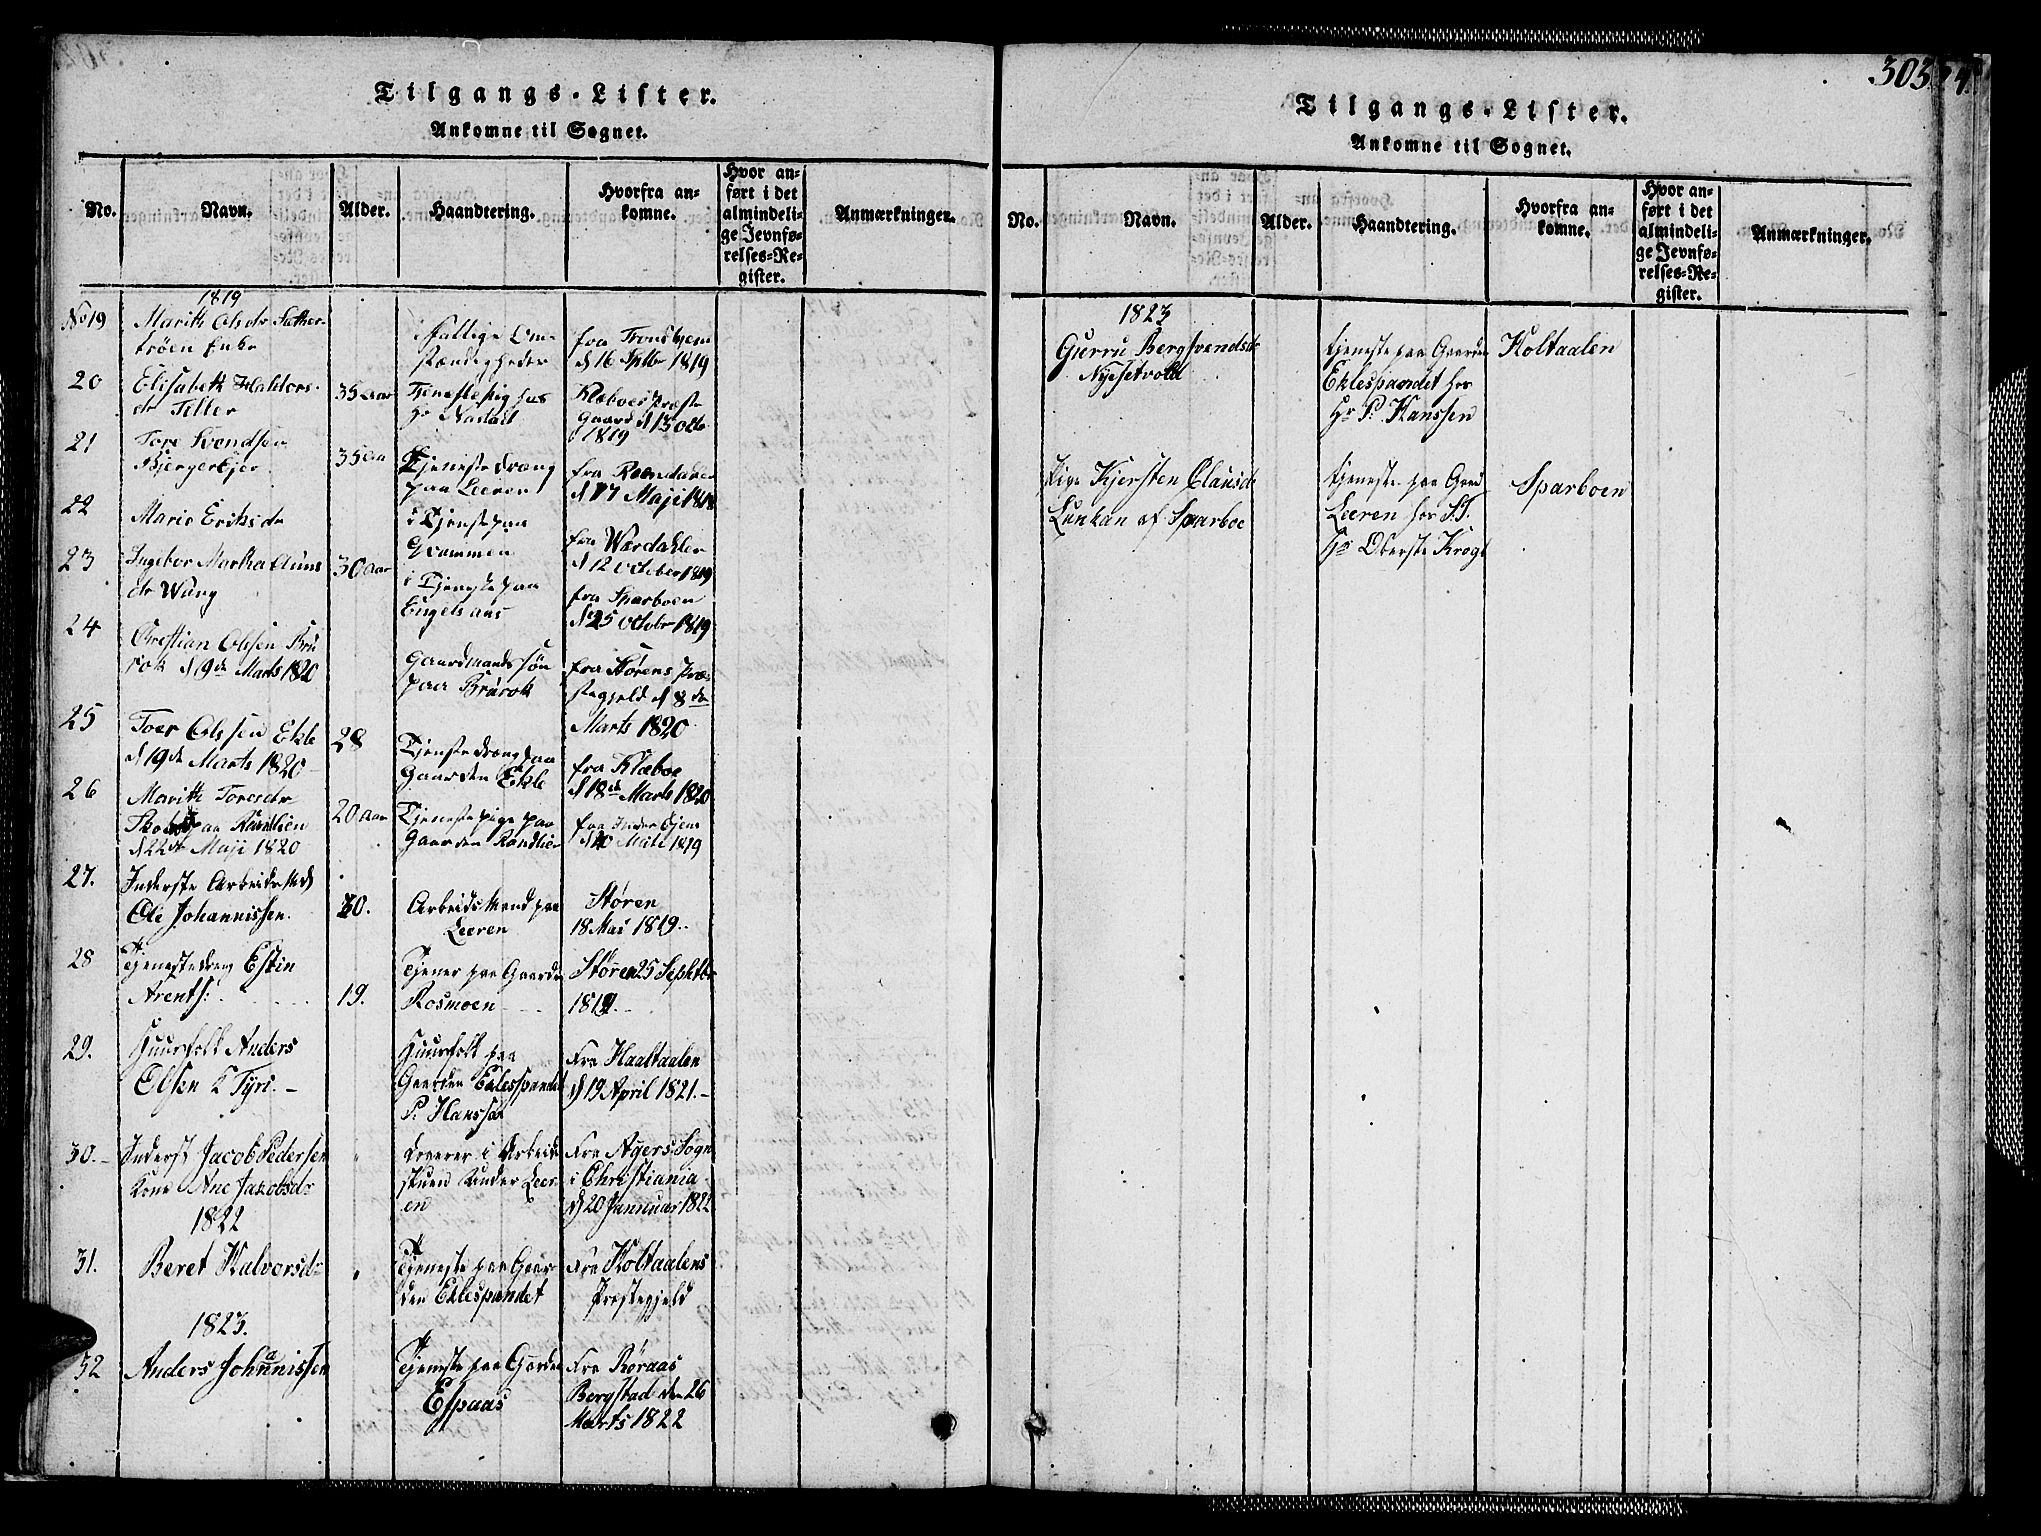 Tilgangs-Lister.
Ankomne til Sognet.
No.
Navn.
Alder.
Haandtering.
Hvorfra an-
komne.
Hvor an-
ført i det
almindeli-
ge Jevnfø-
relses-Re-
gister.
Anmærkninger.
1819
No 19
Marith Olsdr Sæther-
trøen Enke
fattige Om-
stændigheder
fra Trondhjem
d 16 Septbr 1819
20
Elisabeth Haldors-
dr Teller
35 Aar
Tjenestepig hos
Hr
Klæboe Præste
Gaard d 13 Octb
1819
21
Tore Svendsen
35 Aar
Tjenestedræng
paa Leeren
fra Romsdalen
d 17 Maji 1818
22
Marie Eriksdr
i Tjeneste paa
Grammen
fra Wærdalen
d 12 October 1819
23
Ingebor Martha
dr Wung
30 Aar
i Tjeneste paa
Engelsaas
fra Sparboen
d 25 Octobr 1819
24
Christian Olsen Brü
rok d 19de Marts 1820
Gaardmands søn
paa Brürok
fra Størens Præ-
stegjeld d 8de
Marts 1820
25
Toer Olssen Ekle
d 19de Marts 1820
28
Tjenestedræng paa
Gaarden Ekle
fra Klæboe
d 18de Marts 1820
26
Marith Toresdr
paa Randlien
d 22de Maji 1820
20 Aar
Tjenestepige paa
Gaarden Randlien
fra Inder Øjen
1819
27.
Inderste Arbeidsmd
Ole Johannissen.
30.
Arbeidsmand paa
Leeren
Støren
18 Mai 1819.
28
Tjenestedreng Estin
Arents:
19.
Tjener paa Gaarden
Rosmoen
Støren 25 Septbr
1819.
29.
Huusfolk Anders
Olsen & Tyri. -
Huusfolk paa
Gaarden Eklesspandet
P. Hanssen
Fra Haaltaalen
d 19 April 1821. -
30.
Inderst Jacob Pedersen
Kone Ane Jacobsdr
Logerer i Arbeids
stuen under Leer-
en
Fra Agers Sogn
i Christiania
d 20 Januar 1822
1822
31.
Beret Halvorsdr
Tjeneste paa Gaar
den Eklespandet
Fra Holtaalens
Præstegjeld
1823.
32
Anders Johannissen
Tjeneste paa Gaarden
Espaas
Fra Røraas
Bergstad den 26
Marts 1822
303
Tilgangs-Lister.
Ankomne til Sognet.
No.
Navn.
Alder.
Haandtering.
Hvorfra an-
komne.
Hvor an-
ført i det
almindeli-
ge Jevnfø-
relses-Re-
gister.
Anmærkninger.
1823
Gurru Bergsvendsdr
Nyesetvold
tjeneste paa Gaarden
Eklespandet hos
Hr P. Hanssen
Holtaalen
Pige Kjersten Clausdr
Lunhan af Sparboe
tjeneste paa Gaard
Leeren hos S.T.
Hr Oberste Krogh
Sparboen